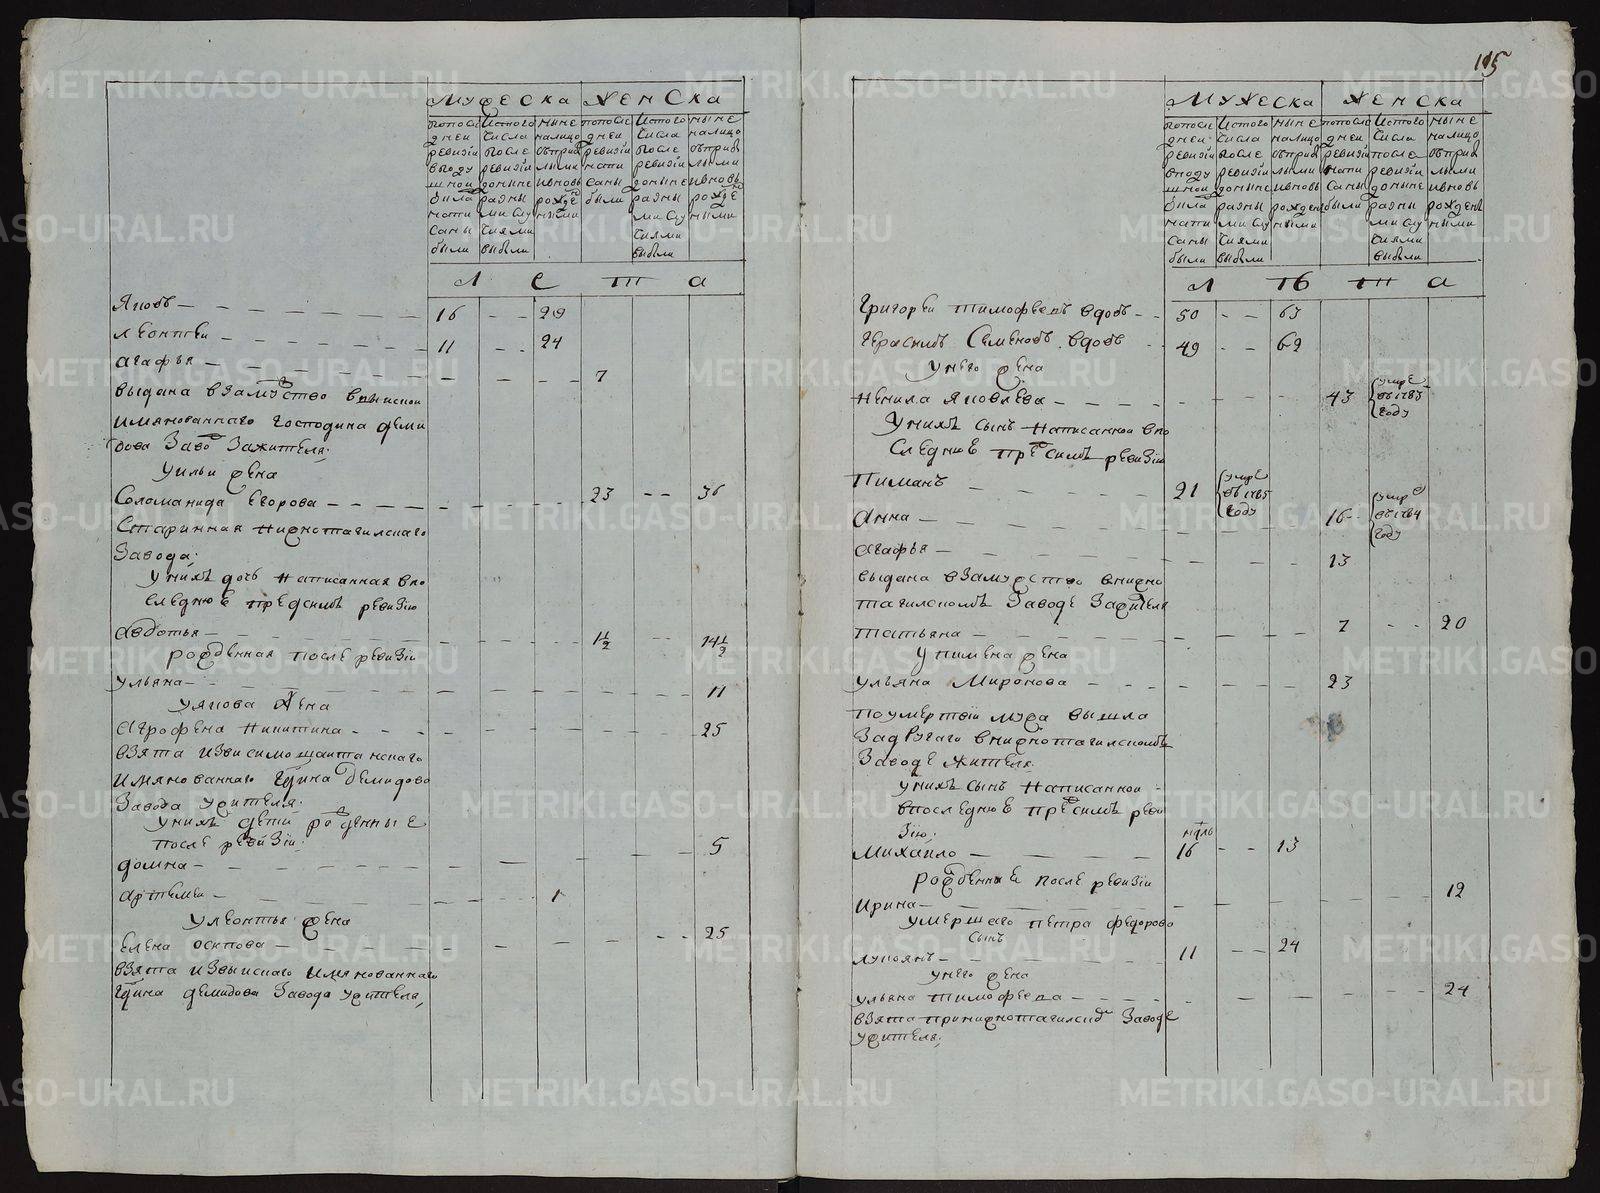 115
Мужеска Женска
попосле
дней
ревизии
вподу
шной
была
напи
саны
были
Истого
числа
после
ревизіи
доныне
разны
ми слу
чаями
выбыли
ныне
налицо
съприб
лыми
ивновь
рожде
ными
попосле
дней
ревизіи
напи
саны
были
Истого
числа
после
ревизіи
доныне
разны
ми слу
чаями
выбыли
ныне
налицо
съприб
лыми
ивновь
рожде
ными
Л е т а
Яковъ 16 29
леонтеи 11 24
агафья 7
выдана взамужство
имянованнаго господина деми
дова Заво Зажителя
Уильи жена
Соломанида Егорова 23 36
Старинная нижнотагилскаго
Завода
Унихъ дочь написанная впо
следнюю предсимъ ревизію
авдотья 1½ 14½
рожденная после ревизіи
ульяна 11
Уякова жена
Агрофена никитина 25
взята извисимошаитанскаго
имянованнаго гдина демидова
Завода ужителя
Унихъ дети рожденные
после ревизіи
домна 5
артемеи 1
Улеонтья жена
Елена осипова 25
взята имянованнаго
гдина демидова Завода ужителя
Мужеска Женска
попосле
дней
ревизіи
вподу
шной
была
напи
саны
были
Истого
числа
после
ревизіи
доныне
разны
ми слу
чаями
выбыли
ныне
налицо
съприб
лыми
ивновь
рожден
ными
попосле
дней
ревизіи
напи
саны
были
Истого
числа
после
ревизіи
доныне
разны
ми слу
чаями
выбыли
ныне
налицо
съприб
лыми
ивновь
рожден
ными
Л ѣ т а
Григореи тимофеевъ вдовъ 50 63
Герасимъ Семеновъ вдовъ 49 62
Унего жена
Ненила яковлева 43 умре въ 1783 году
Унихъ сынъ написанной впо
следнюю предсимъ ревизію
Пиманъ 21 умре въ 1785 году
Анна 16 умре въ 1784 году
Агафья 13
выдана взамужство внижно
тагилскомъ Заводе Зажителя
татьяна 7 20
Упимена жена
ульяна Миронова 23
поумертвіи мужа вышла
Задругаго внижнотагилскомъ
Заводе жителя
Унихъ сынъ написанной
впоследнюю предсимъ реви
зію
Михаило 16 13
рожденные после ревизіи
Ирина 12
Умершаго петра федорова
сынъ
лупоянъ 11 24
Унего жена
ульяна тимофеева 24
взята Заводе
ужителя
METRIKI.GASO-URAL.RU